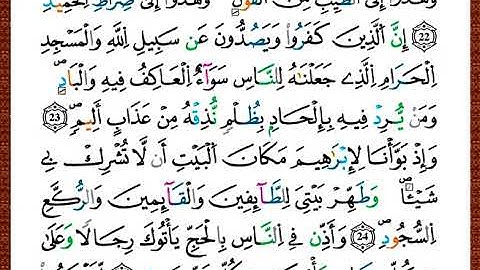 وَهُدُوا إِلَى الطَّيِّبِ مِنَ الْقَوْلِ وَهُدُوا إِلَى صِرَاطِ الْحَمِيدِ
22 إِنَّ الَّذِينَ كَفَرُوا وَيَصُدُّونَ عَن سَبِيلِ اللَّهِ وَالْمَسْجِدِ
الْحَرَامِ الَّذِي جَعَلْنَٰهُ لِلنَّاسِ سَوَآءٌ الْعَاكِفُ فِيهِ وَالْبَادِ
وَمَنْ يُّرِدْ فِيهِ بِإِلْحَادٍ بِظُلْمٍ نُّذِقْهُ مِنْ عَذَابٍ أَلِيمٍ 23
وَإِذْ بَوَّأْنَا لِإِبْرَٰهِيمَ مَكَانَ الْبَيْتِ أَن لَّا تُشْرِكْ بِي
شَيْـًٔا وَطَهِّرْ بَيْتِي لِلطَّآئِفِينَ وَالْقَآئِمِينَ وَالرُّكَّعِ
السُّجُودِ 24 وَأَذِّن فِي النَّاسِ بِالْحَجِّ يَأْتُوكَ رِجَالًا وَعَلَى